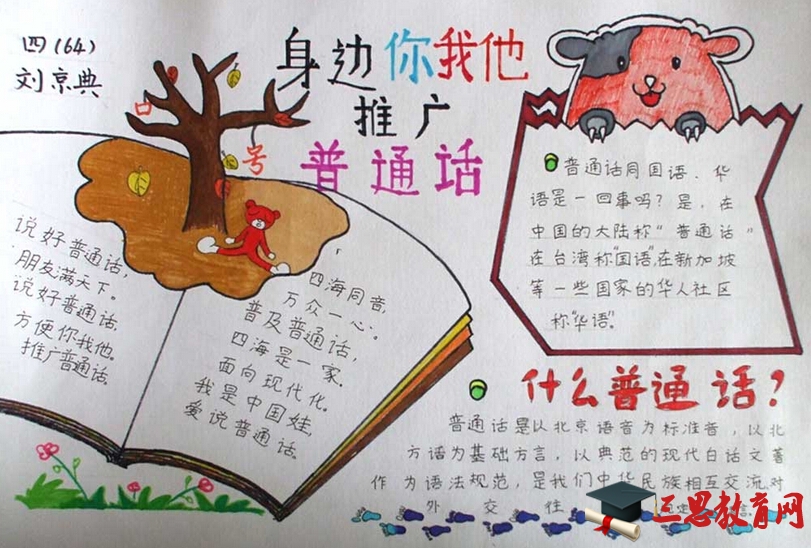 四(64)
刘京典
身边你我他
推广
普通话
口
号
说好普通话,
朋友满天下。
说好普通话,
方便你我他。
推广普通话。
四海同音,
万众一心。
普及普通话,
四海是一家.
面向现代化.
我是中国娃,
爱说普通话。
普通话同国语、华
语是一回事吗?是,在
中国的大陆称"普通话"
在台湾称"国语",在新加坡
等一些国家的华人社区
称"华语"。
什么普通话?
普通话是以北京语音为标准音,以北
方话为基础方言,以典范的现代白话文著
作为语法规范,是我们中华民族相互交流,对
外交性
三思教育网